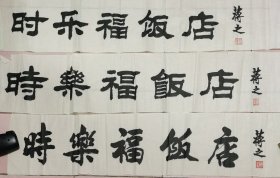 时乐福饭店 蒋之
時樂福飯店 蒋之
時樂福饭店 蒋之